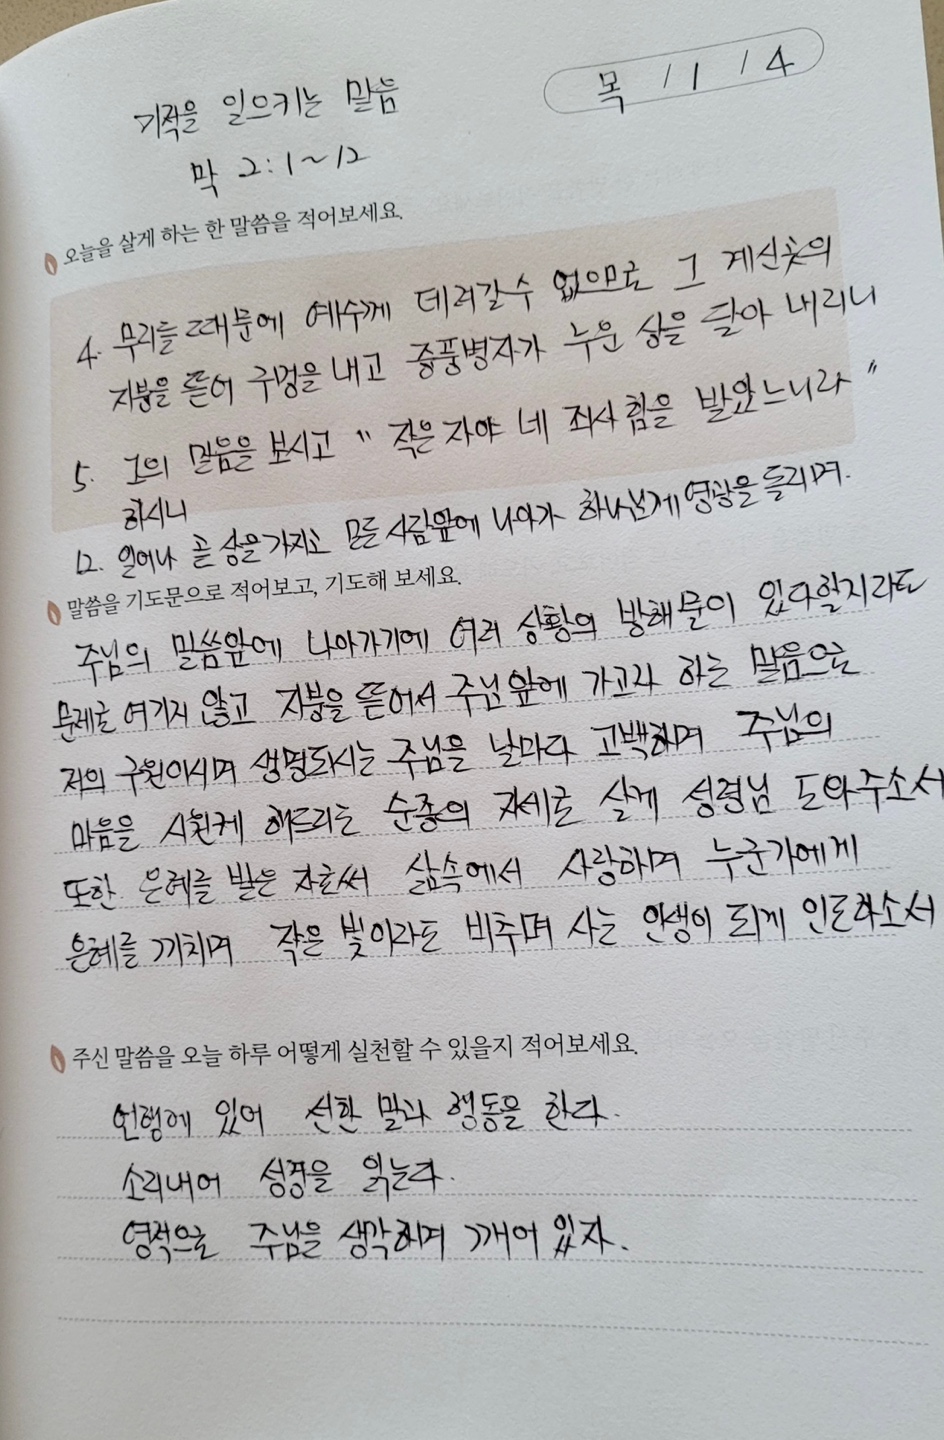 목 / 1 / 4
기적을 일으키는 말씀
막 2:1~12
오늘을 살게 하는 한 말씀을 적어보세요.
4. 무리들 때문에 예수께 데려갈수 없으므로 그 계신곳의
지붕을 뜯어 구멍을 내고 중풍병자가 누운 상을 달아 내리니
5. 그의 말음을 보시고 " 작은 자야 네 죄사함을 받았느니라 "
하시니
12. 일어나 곧 상을가지고 모든 사람앞에 나아가 하나님께 영광을 돌리며.
말씀을 기도문으로 적어보고, 기도해 보세요.
주님의 말씀앞에 나아가기에 여러 상황의 방해물이 있다할지라도
문제로 여기지 않고 지붕을 뜯어서 주님 앞에 가고자 하는 말음으로
저의 구원이시며 생명되시는 주님을 날마다 고백하며 주님의
마음을 시원케 해드리는 순종의 자세로 살게 성령님 도와주소서
또한 은혜를 받은 자로써 삶속에서 사랑하며 누군가에게
은혜를 끼치며 작은 빛이라도 비추며 사는 인생이 되게 인도하소서
주신 말씀을 오늘 하루 어떻게 실천할 수 있을지 적어보세요.
언행에 있어 선한 말과 행동을 한다.
소리내어 성경을 읽는다.
영적으로 주님을 생각하며 깨어 있자.